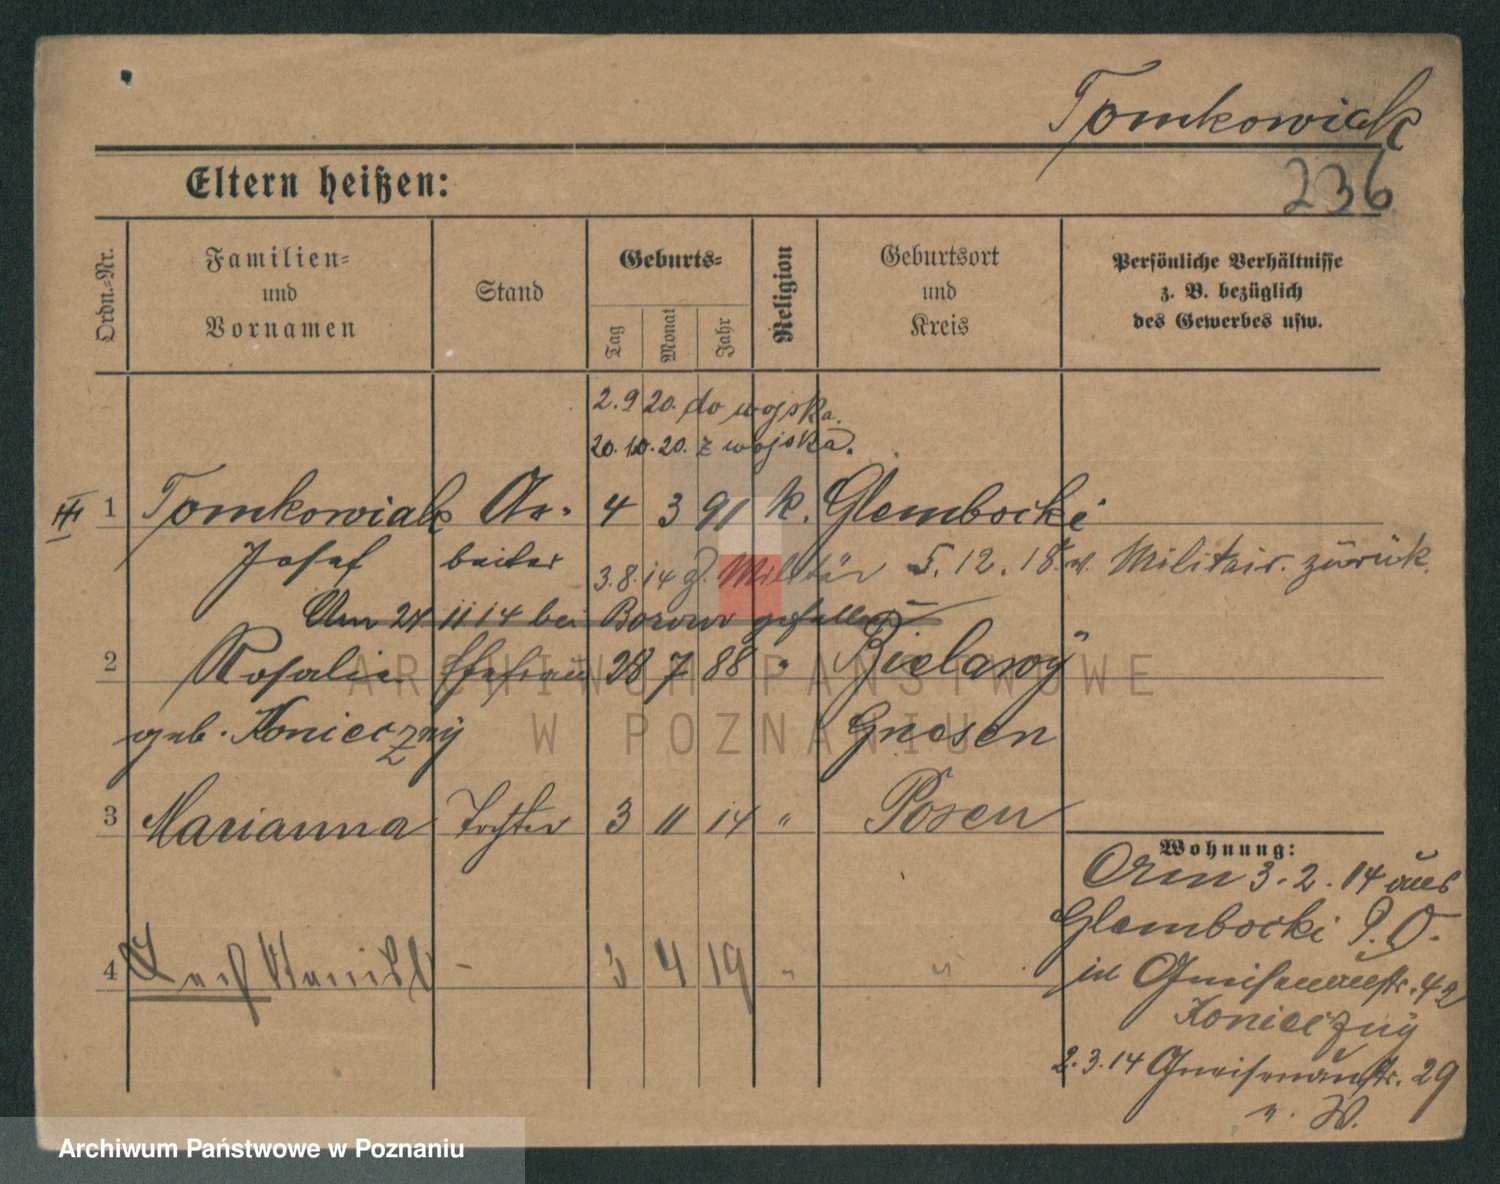 Tomkowiak
236
Eltern heißen:
Ordn.=Nr.
Familien=
und
Vornamen
Stand
Geburts=
Tag
Monat
Jahr
Religion
Geburtsort
und
Kreis
Persönliche Verhältnisse
z. B. bezüglich
des Gewerbes usw.
2.9 20. do wojska.
20.10.20. z wojska.
III 1 Tomkowiak Ar- 4 3 91 k. Glembocki
Josef beiter 3.8.14 z. Militär 5.12.18 v. Militair. zürük.
Am 24 11 14 bei Borow gefallen
2 Rosalie Ehefrau 28 7 88 " Bielawy
geb. Konieczny Gnesen
3 Marianna Tochter 3 11 14 " Posen
4 - 3 4 19 " "
Wohnung:
Am 3.2.14 aus
Glembocki P. O.
in Gneisenaustr. 42
Konieczny
2.3.14 Gneisenaustr. 29
W.
ARCHIWUM PAŃSTWOWE
W POZNANIU
Archiwum Państwowe w Poznaniu